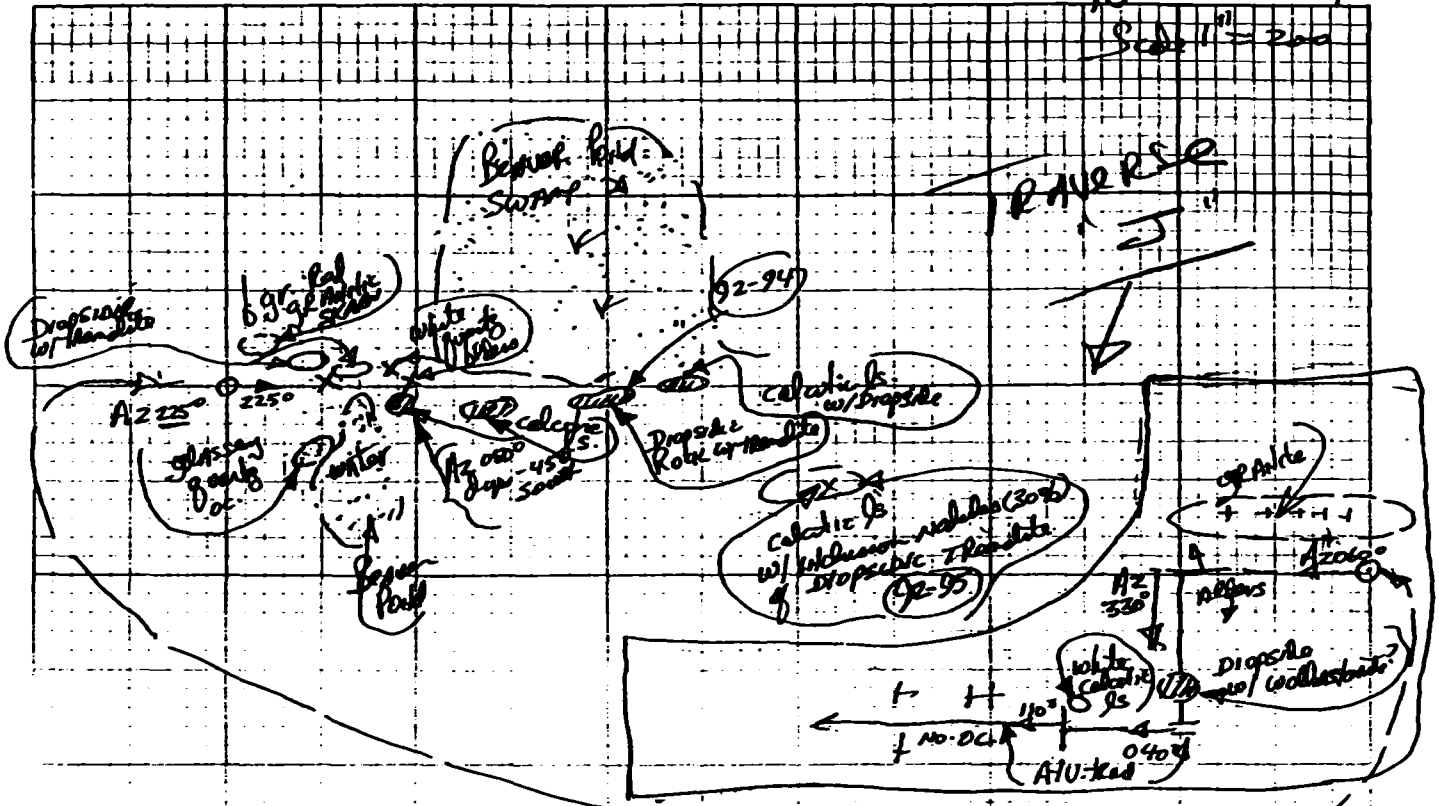 Scale 1" = 200
TRAVERSE
"J"
Beaver Pond
Swamp
92-94
Diopside
w/ tremolite
f gr. Red
granitic
skarn
White
quartz
Az 225°
225°
glassey
quartz
oc
water
Beaver
Pond
Az 050°
dips -45°
south
calcitic ls
w/ Diopside
Diopside
Rock w/ tremolite
calcitic ls
w/ inclusion nodules (30%)
of Diopsidic Tremolite
92-95
granite
Az 060°
Az
330°
Alders
White
calcitic
ls
Diopside
w/ wollastonite?
110°
No. OC
040°